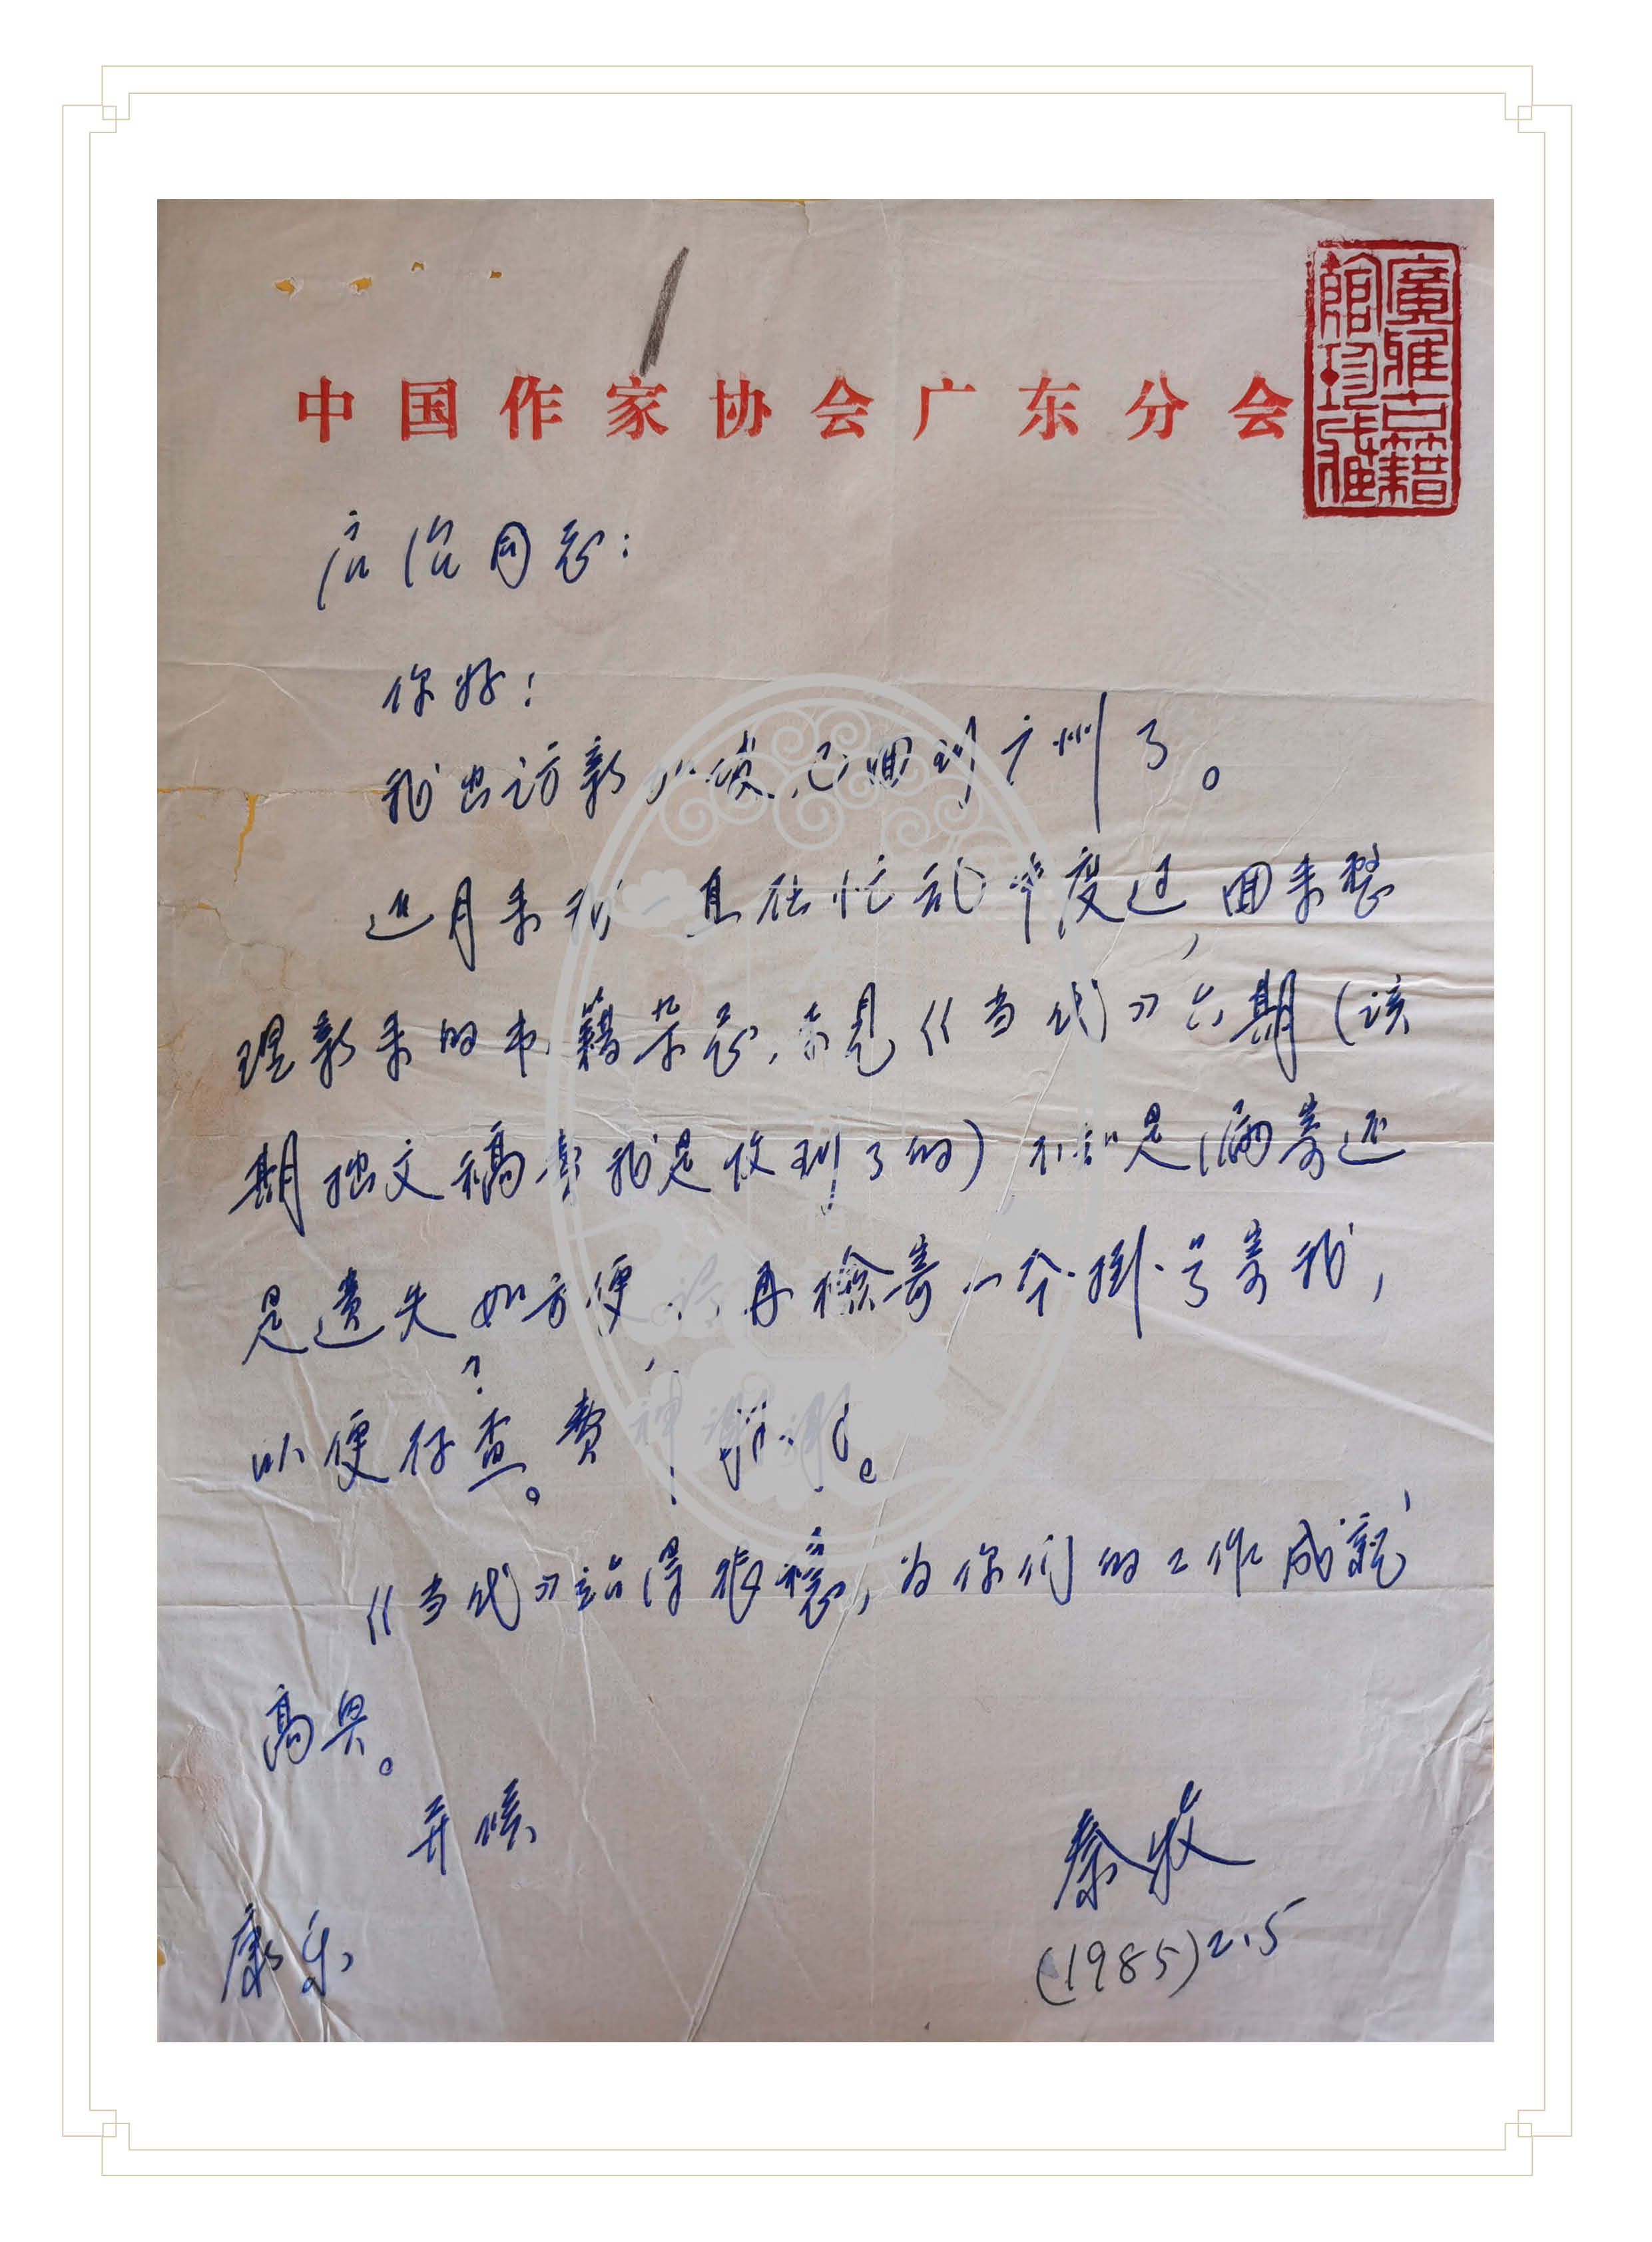 中国作家协会广东分会
廣雅古籍
館珍藏
启治同志：
你好！
我出访新加坡，已回到广州了。
近月来我一直在忙乱中度过，回来整
理新来的书籍杂志，未见《当代》六期（该
期拙文稿费我是收到了的）不知是漏寄还
是遗失？如方便，请再检寄一本掛号寄我，
以便存查。费神，谢谢。
《当代》站得很稳，为你们的工作成就
高兴。
并候
康乐
秦牧
(1985)2.5